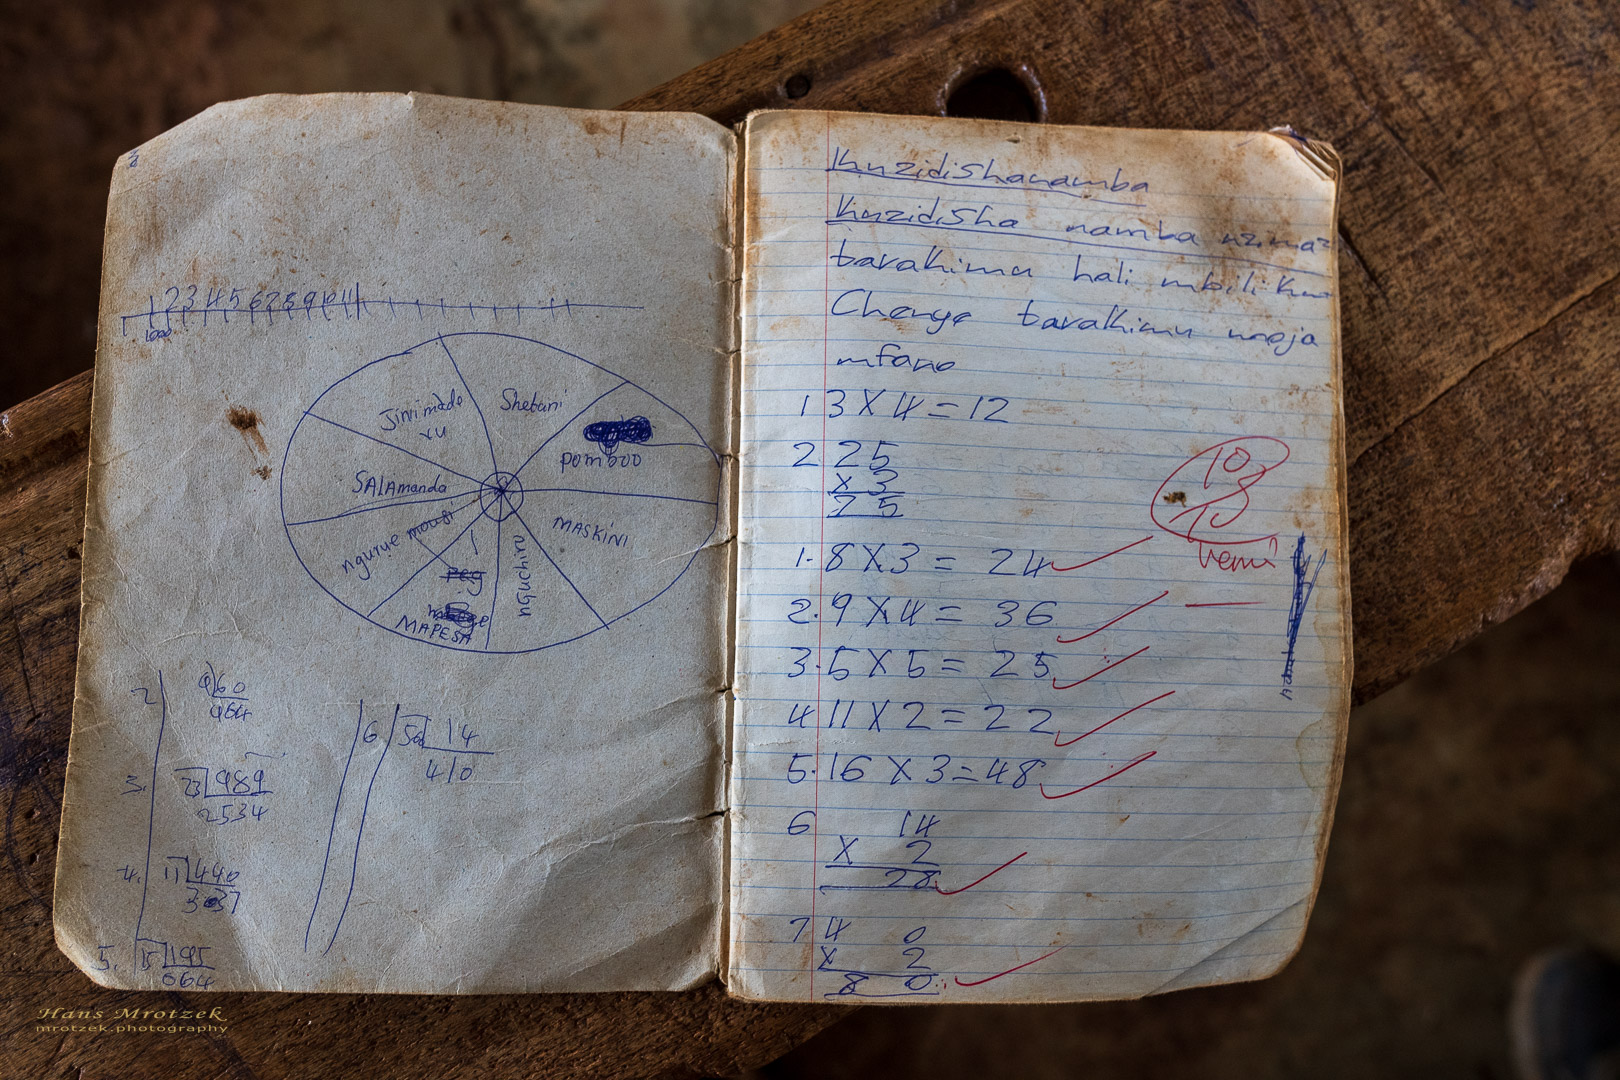 1 2 3 4 5 6 7 8 9 10 11
1000
Jinimade
ru
Shetani
pomboo
SALAmanda
MASKINI
ngurue mougi
nguchiru
peg
MAPESA
2
960
964
3. 23 989
2534
4. 11 440
3037
5. 15 195
064
6 56 14
410
Kuzidishanamba
Kuzidisha namba nzima
tarakimu hali mbili kwa
Chenye tarakimu moja
mfano
1 3 X 4 = 12
2 25
x 3
75
10
13
vema
1. 8 X 3 = 24
2. 9 X 4 = 36
3. 5 X 5 = 25
4 11 X 2 = 22
5. 16 X 3 = 48
6 14
X 2
28
7 4 0
x 2
8 0
Hans Mrotzek
mrotzek.photography